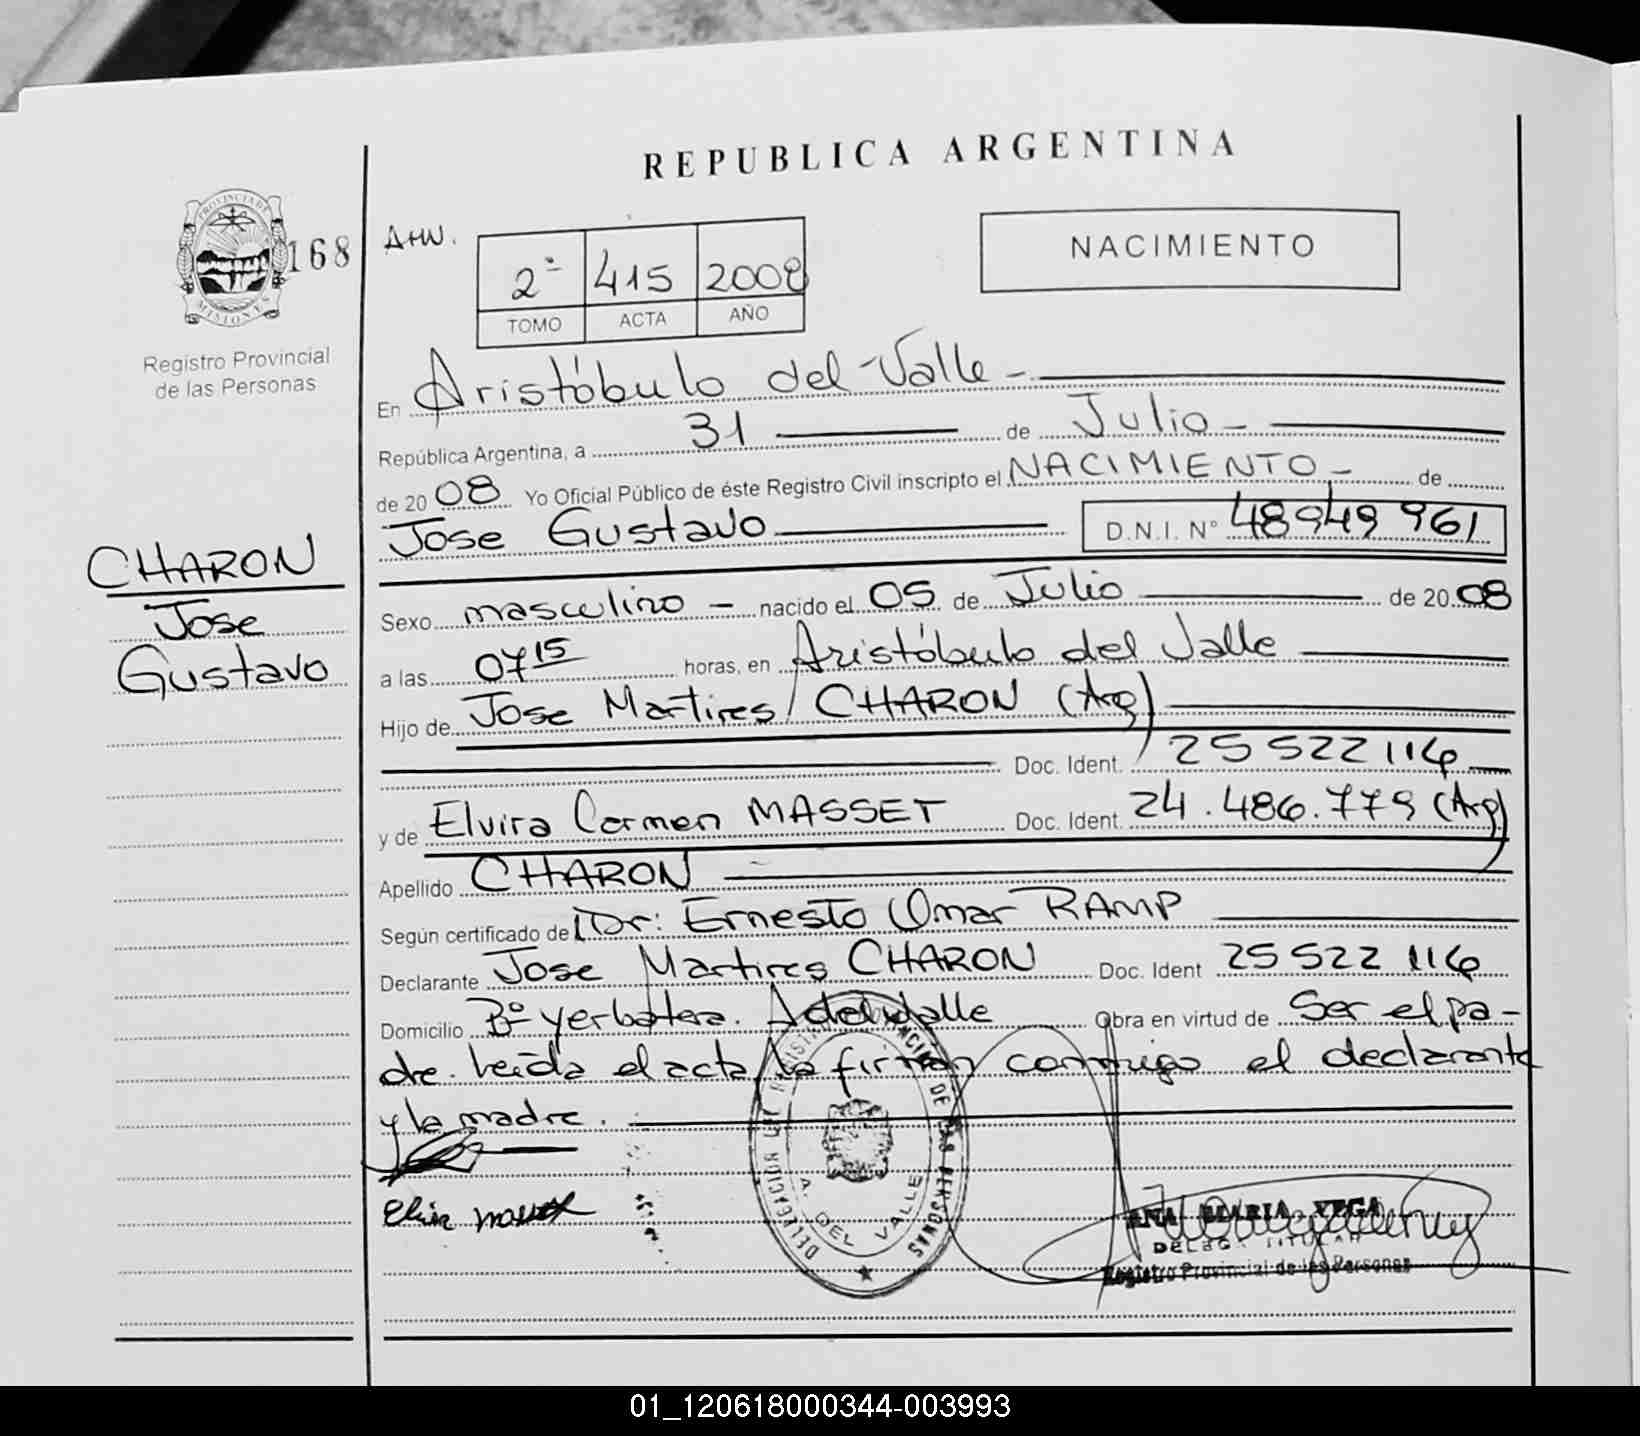 REPUBLICA ARGENTINA
PROVINCIA DE
MISIONES
168
Registro Provincial
de las Personas
AHN.
2ª 415 2008
TOMO ACTA AÑO
NACIMIENTO
En Aristóbulo del Valle -
República Argentina, a 31 de Julio -
de 2008 Yo Oficial Público de éste Registro Civil inscripto el NACIMIENTO - de
Jose Gustavo D.N.I. Nº 48949961
CHARON
Jose
Gustavo
Sexo masculino - nacido el 05 de Julio de 2008
a las 07 15 horas, en Aristóbulo del Valle
Hijo de Jose Martires CHARON (Arg)
Doc. Ident. 25522116
y de Elvira Carmen MASSET Doc. Ident. 24.486.779 (Arg)
Apellido CHARON
Según certificado de Dr: Ernesto Omar RAMP
Declarante Jose Martires CHARON Doc. Ident 25522116
Domicilio Bº Yerbatera. A del valle Obra en virtud de Ser el pa-
dre. Leída el acta, la firman conmigo el declarante
y la madre.
DELEGACION DE LAS PERSONAS
A. DEL VALLE
ANA MARIA VEGA
DELEG. TITULAR
Registro Provincial de las Personas
01_120618000344-003993